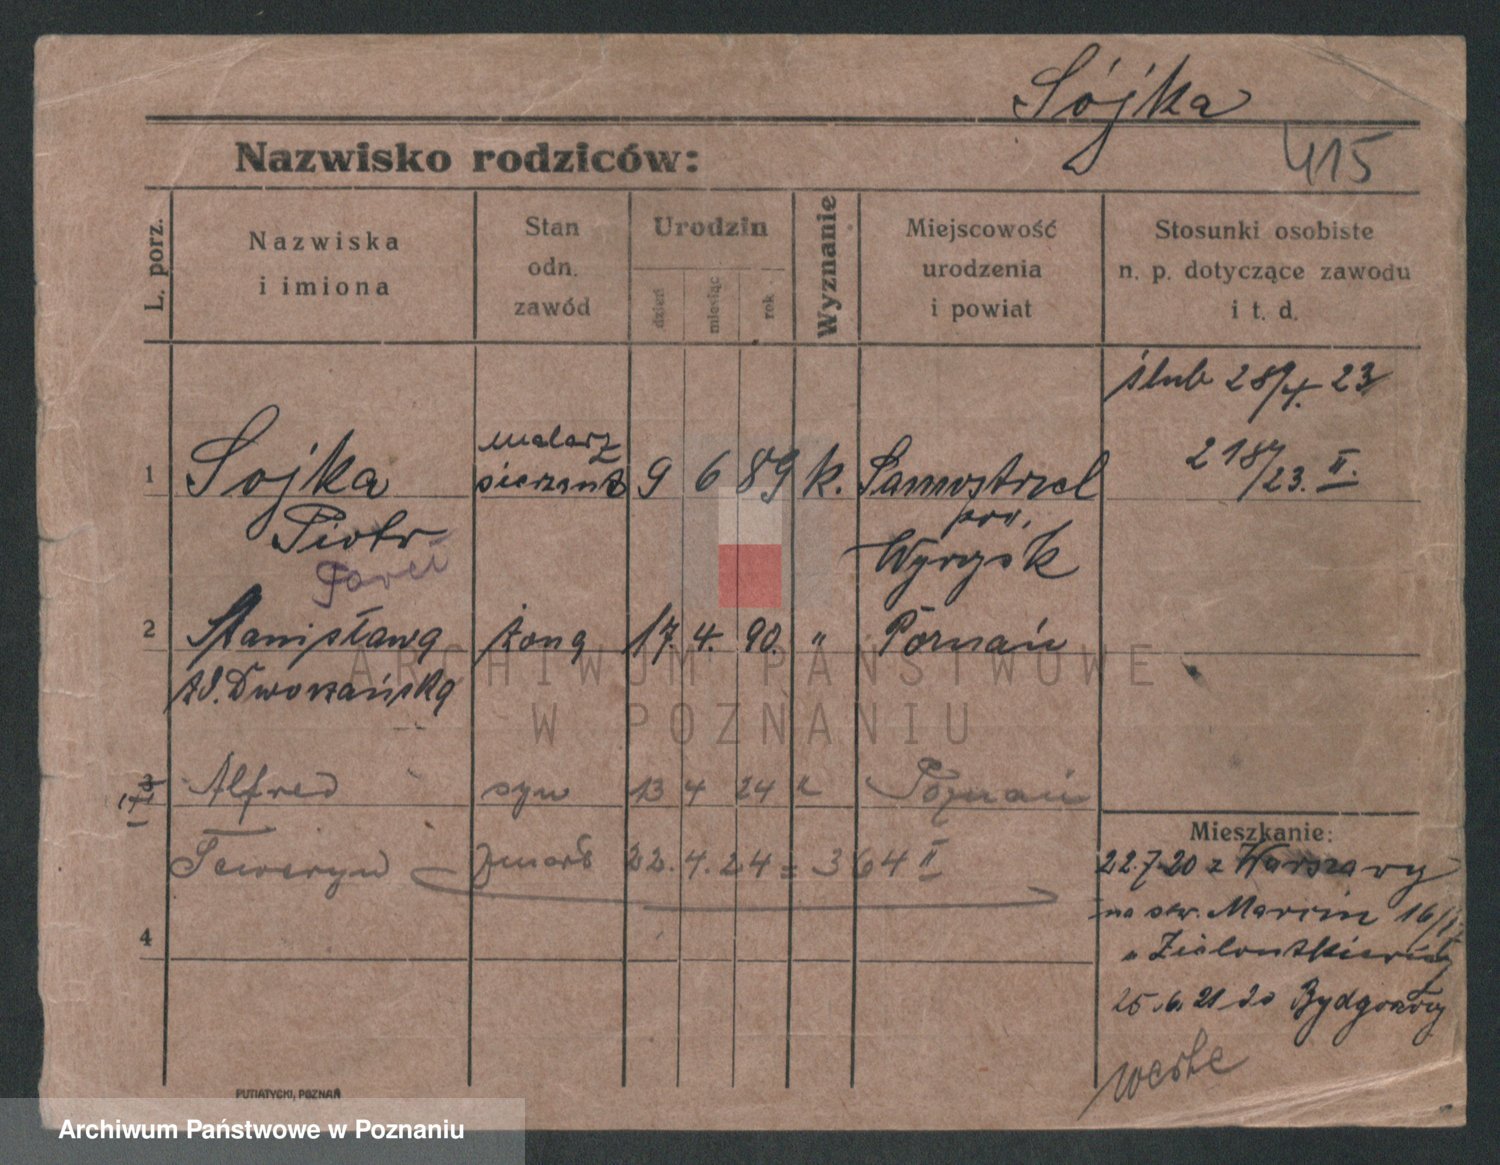 Sójka
Nazwisko rodziców:
415
L. porz.
Nazwiska
i imiona
Stan
odn.
zawód
Urodzin
dzień
miesiąc
rok
Wyznanie
Miejscowość
urodzenia
i powiat
Stosunki osobiste
n. p. dotyczące zawodu
i t. d.
ślub 28/4. 23
malarz
1 Sojka sierżant 9 6 89 k. Samostrzel
2184/23. II.
Piotr pow.
Wyrzysk
2 Stanisława żona 17. 4. 90. " Poznań
zd. Dworzańska
ARCHIWUM PAŃSTWOWE
W POZNANIU
3 Alfred syn 13 4 24 Poznań
Seweryn zmarł 22. 4. 24 = 364 II
4
Mieszkanie:
22.7.20 z Warszawy
na św. Marcin 16/17
25.6.21 do Bydgoszczy
PUTIATYCKI, POZNAŃ
Archiwum Państwowe w Poznaniu